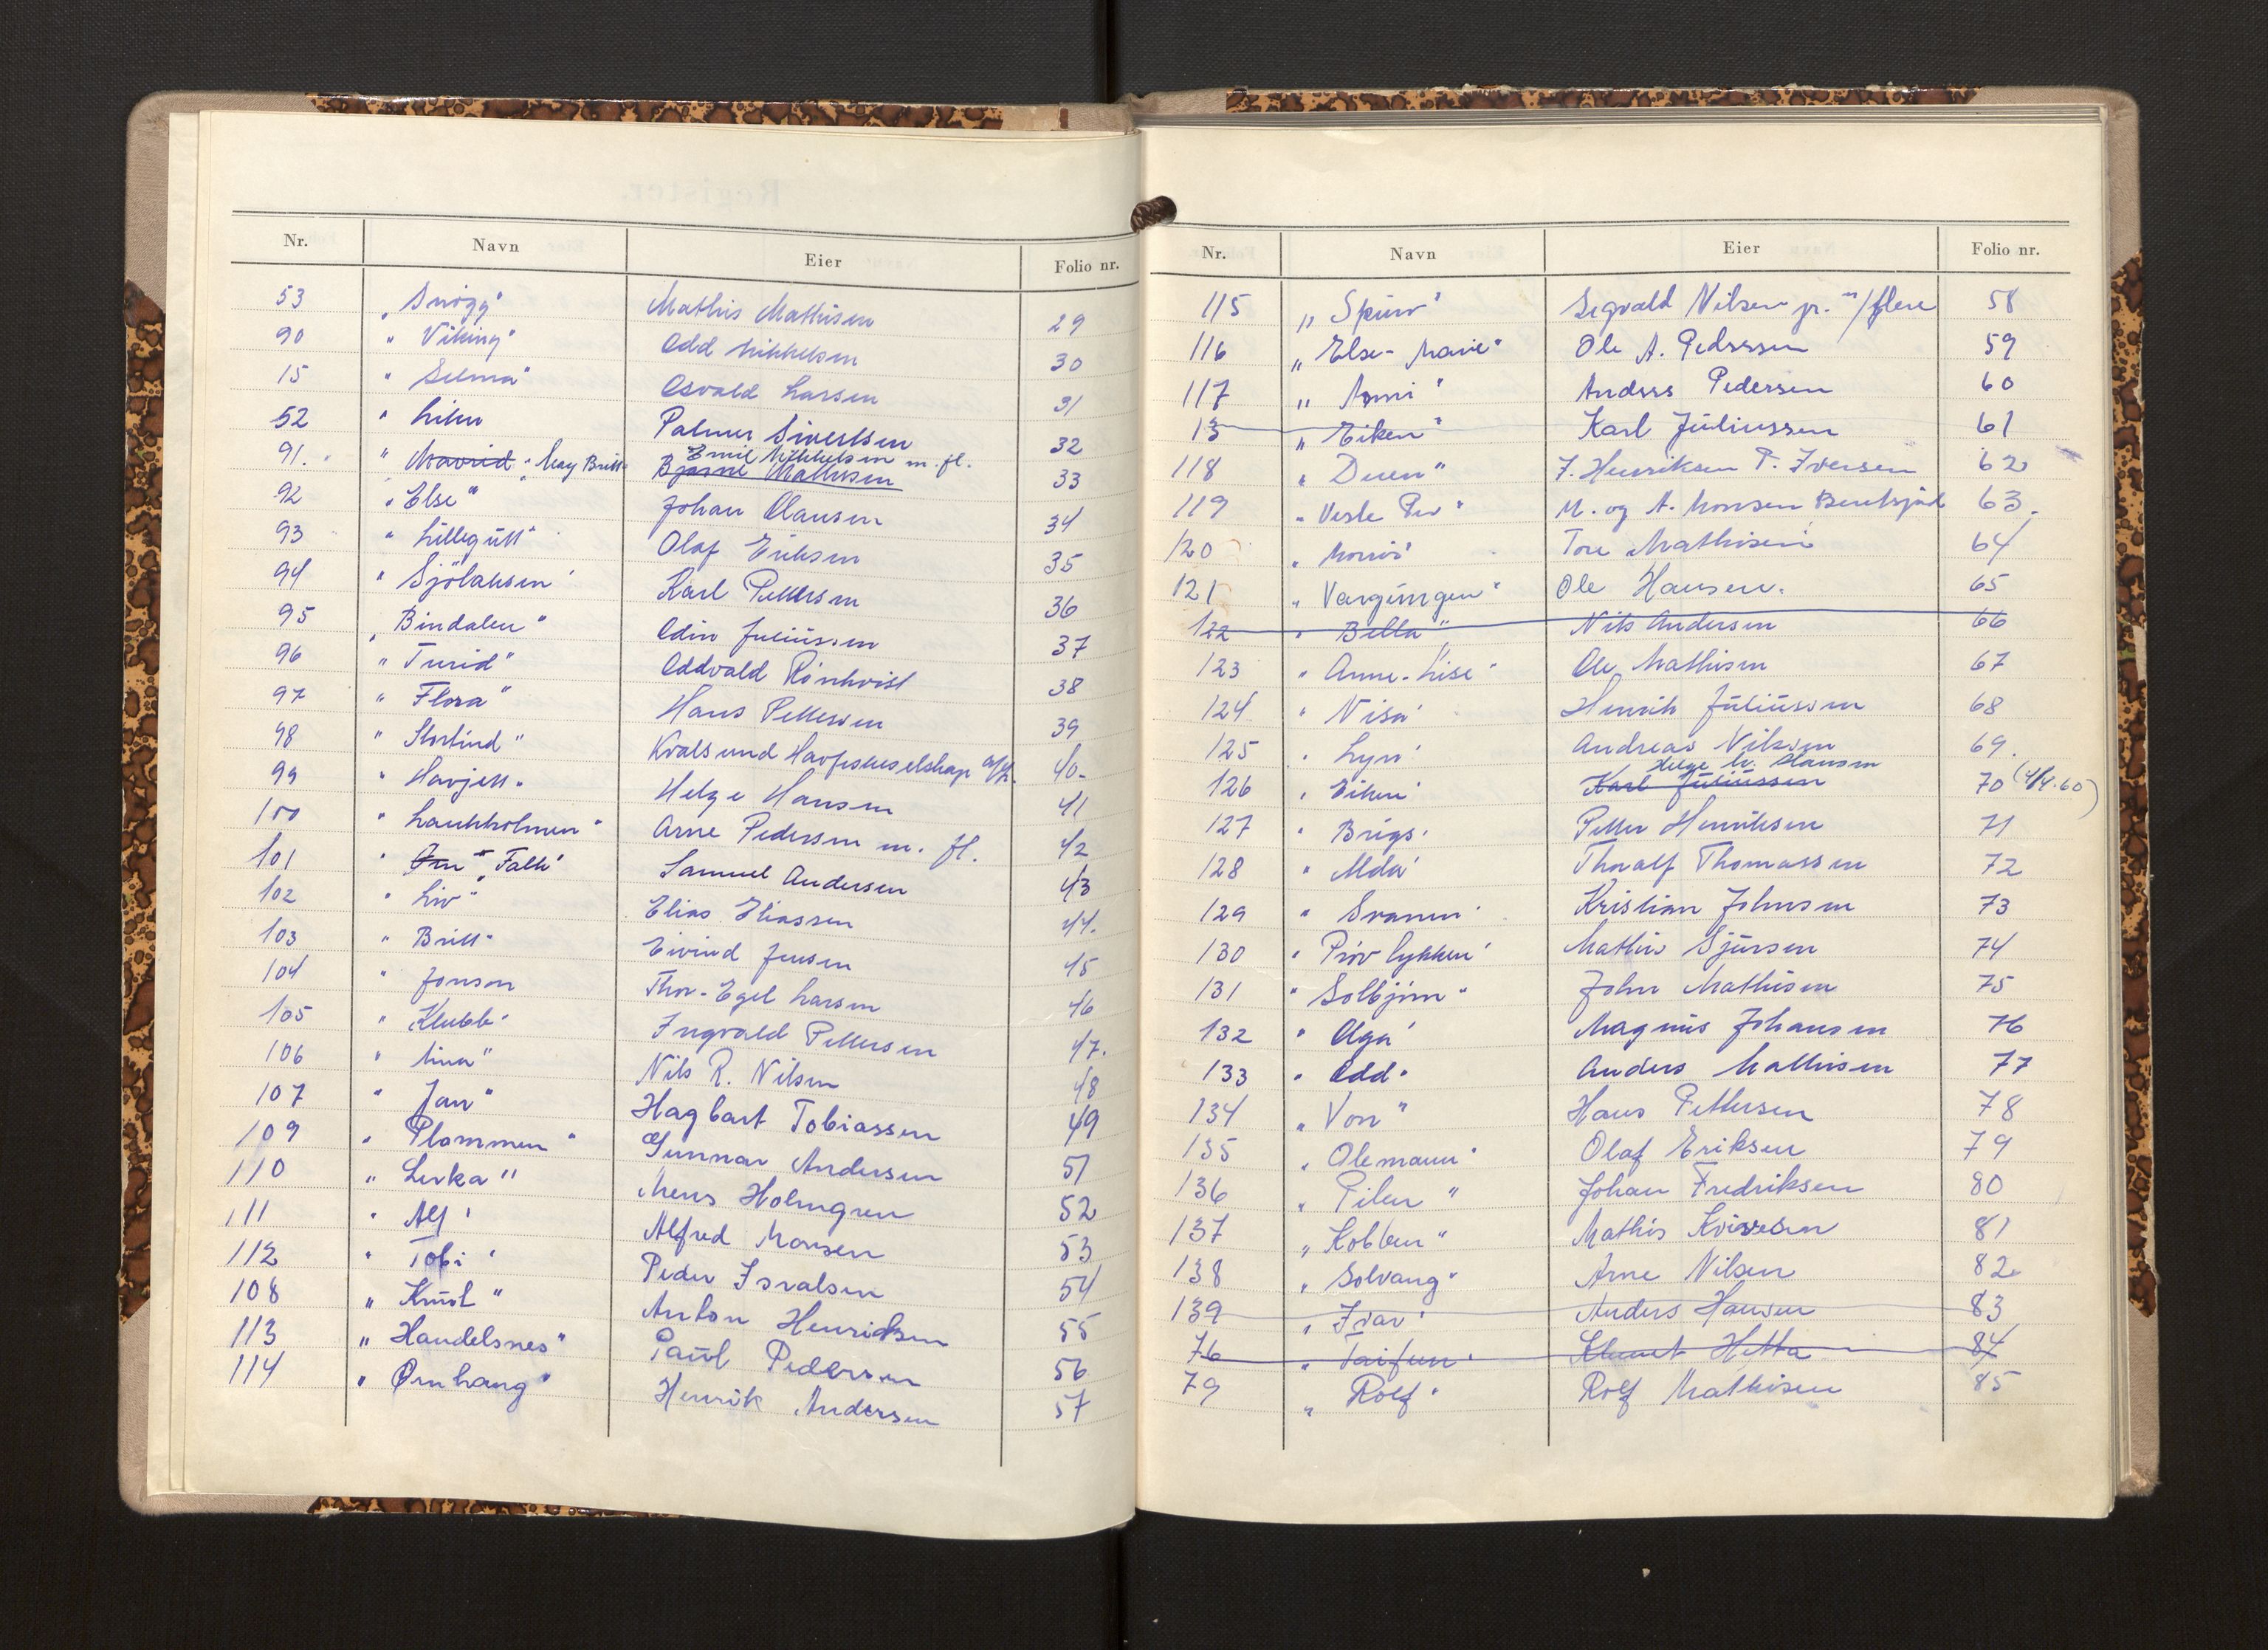 Nr. Navn Eier Folio nr.
53 „Snögg" Mathis Mathisen 29
90 " Viking" Odd Mikkelsen 30
15 " Selma" Osvald Larsen 31
52 " Liken Palmer Sivertsen 32
Emil Mikkelsen m. fl.
91. " Mavrid "May Britt" Bjarne Mathisen 33
92 "Else" Johan Clausen 34
93 " Lillegutt" Olaf Eriksen 35
94 " Sjölaksen" Karl Pettersen 36
95 „Bindalen" Odin Juliussen 37
96 " Turid" Oddvald Rönkvist 38
97 " Flora" Hans Pettersen 39
98 " Stortind" Kvalsund Havfiskeselskap A/L. 40
99 " Havjett" Helge Hansen 41
100 " Laukholmen" Arne Pedersen m. fl. 42
101 " Örn" „Falk" Samuel Andersen 43
102 " Liv" Elias Eliassen 44.
103 " Britt" Eivind Jensen 45
104 " Jonson Thor-Egil Larsen 46
105 " Klubb" Ingvald Pettersen 47.
106 " Lina" Nils R. Nilsen 48
107 " Jan" Hagbart Tobiassen 49
109 " Plommen" Gunnar Andersen 51
110 „ Lerka" Mens Holmgren 52
111 " Alf" Alfred Monsen 53
112 " Tobi" Peder Isralsen 54
108 „ Knut" Anton Henriksen 55
113 „ Handelsnes" Paul Pedersen 56
114 " Ørnhaug" Henrik Andersen 57
Nr. Navn Eier Folio nr.
115 „ Spurv" Sigvald Nilsen jr. m/flere 58
116 „ Else-Marie" Ole A. Pedersen 59
117 „ Anni" Anders Pedersen 60
13 „ Eiken" Karl Juliussen 61
118 „ Duen" J. Henriksen P. Iversen 62
119 " Vesle Per" M. og A. Monsen Bentsjord 63.
120 " Monis" Tore Mathisen 64
121 " Vargungen" Ole Hansen. 65
122 " Bella" Nils Andersen 66
123 " Anne-Lise" Ole Mathisen 67
124 " Nisa" Henrik Juliussen 68
125 " Lyn" Andreas Nilsen 69.
Helge Hansen
126 " Eiken" Karl Juliussen 70 (4/4.60)
127 " Brigs" Petter Henriksen 71
128 " Alda" Thoralf Thomassen 72
129 " Svanen" Kristian Johnsen 73
130 " Pröv lykken" Mathis Sjursen 74
131 " Solbjörn" John Mathisen 75
132 " Olga" Magnus Johansen 76
133 " Odd" Anders Mathisen 77
134 „ Von" Hans Pettersen 78
135 " Olemann" Olaf Eriksen 79
136 „ Pilen" Johan Fredriksen 80
137 „ Kobben" Mathis 81
138 " Solvang" Arne Nilsen 82
139 " Ivar" Anders Hansen 83
76 " Taifun" Klemet Hetta 84
79 " Rolf" Rolf Mathisen 85